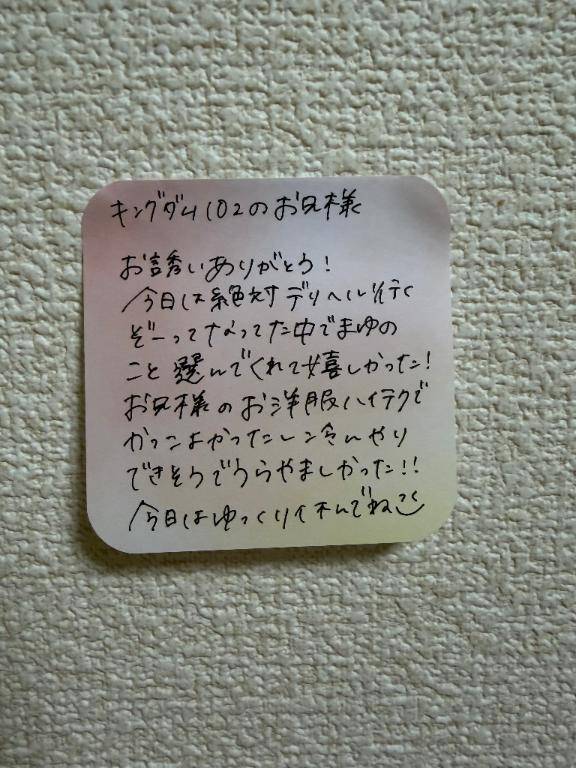 キングダム102のお兄様
お誘いありがとう!
今日は絶対デリヘル行く
ぞーってなってた中でまゆの
こと選んでくれて嬉しかった!
お兄様のお洋服ハイテクで
かっこよかったしひんやり
できそうでうらやましかった!!
今日はゆっくり休んでね